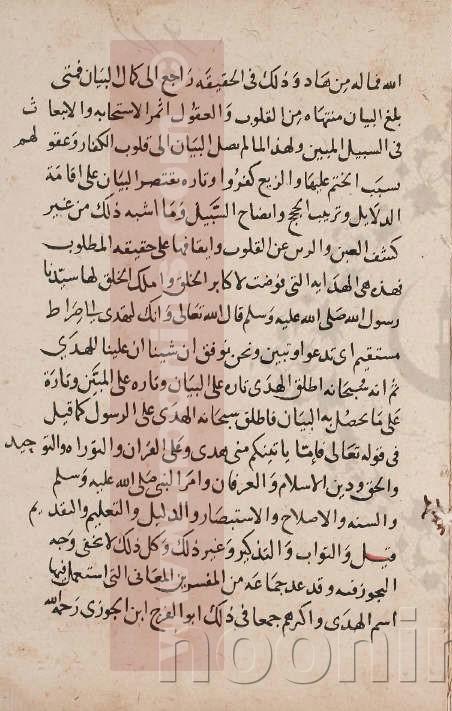 الله فماله من هاد وذلك في الحقيقه راجع الى كمال البيان فمتى
بلغ البيان منتهاه من القلوب والعقول اثمر الاستجابه والانبعاث
في السبيل المبين ولهذا لما لم يصل البيان الى قلوب الكفار وعقولهم
بسبب الختم عليها والزيغ كفروا وتاره يقتصر البيان على اقامة
الدلايل وترتيب الحجج وايضاح السبيل وما اشبه ذلك من غير
كشف الغين والرين عن القلوب وايقافها على حقيقه المطلوب
فهذه هي الهدايه التي فوضت لاكابر الخلق واملك الخلق لها سيدنا
رسول الله صلى الله عليه وسلم قال الله تعالى وانك لتهدي الى صراط
مستقيم اي تدعو وتبين ونحن نوفق ان شينا ان علينا للهدى
ثم انه سبحانه اطلق الهدى تاره على البيان وتاره على المبين وتارة
على ما يحصل به البيان فاطلق سبحانه الهدى على الرسول كما قيل
في قوله تعالى فاما ياتينكم مني هدى وعلى القران والتوراه والتوحيد
والحق ودين الاسلام والعرفان وامر النبي صلى الله عليه وسلم
والسنه والاصلاح والاستبصار والدليل والتعليم والتقديم
قيل والثواب والتذكير وغير ذلك وكل ذلك لا يخفى وجه
التجوز فيه وقد عد جماعه من المفسرين المعاني التي استعمل فيها
اسم الهدى واكثرهم جمعا في ذلك ابو الفرج ابن الجوزي رحمه الله
noorin